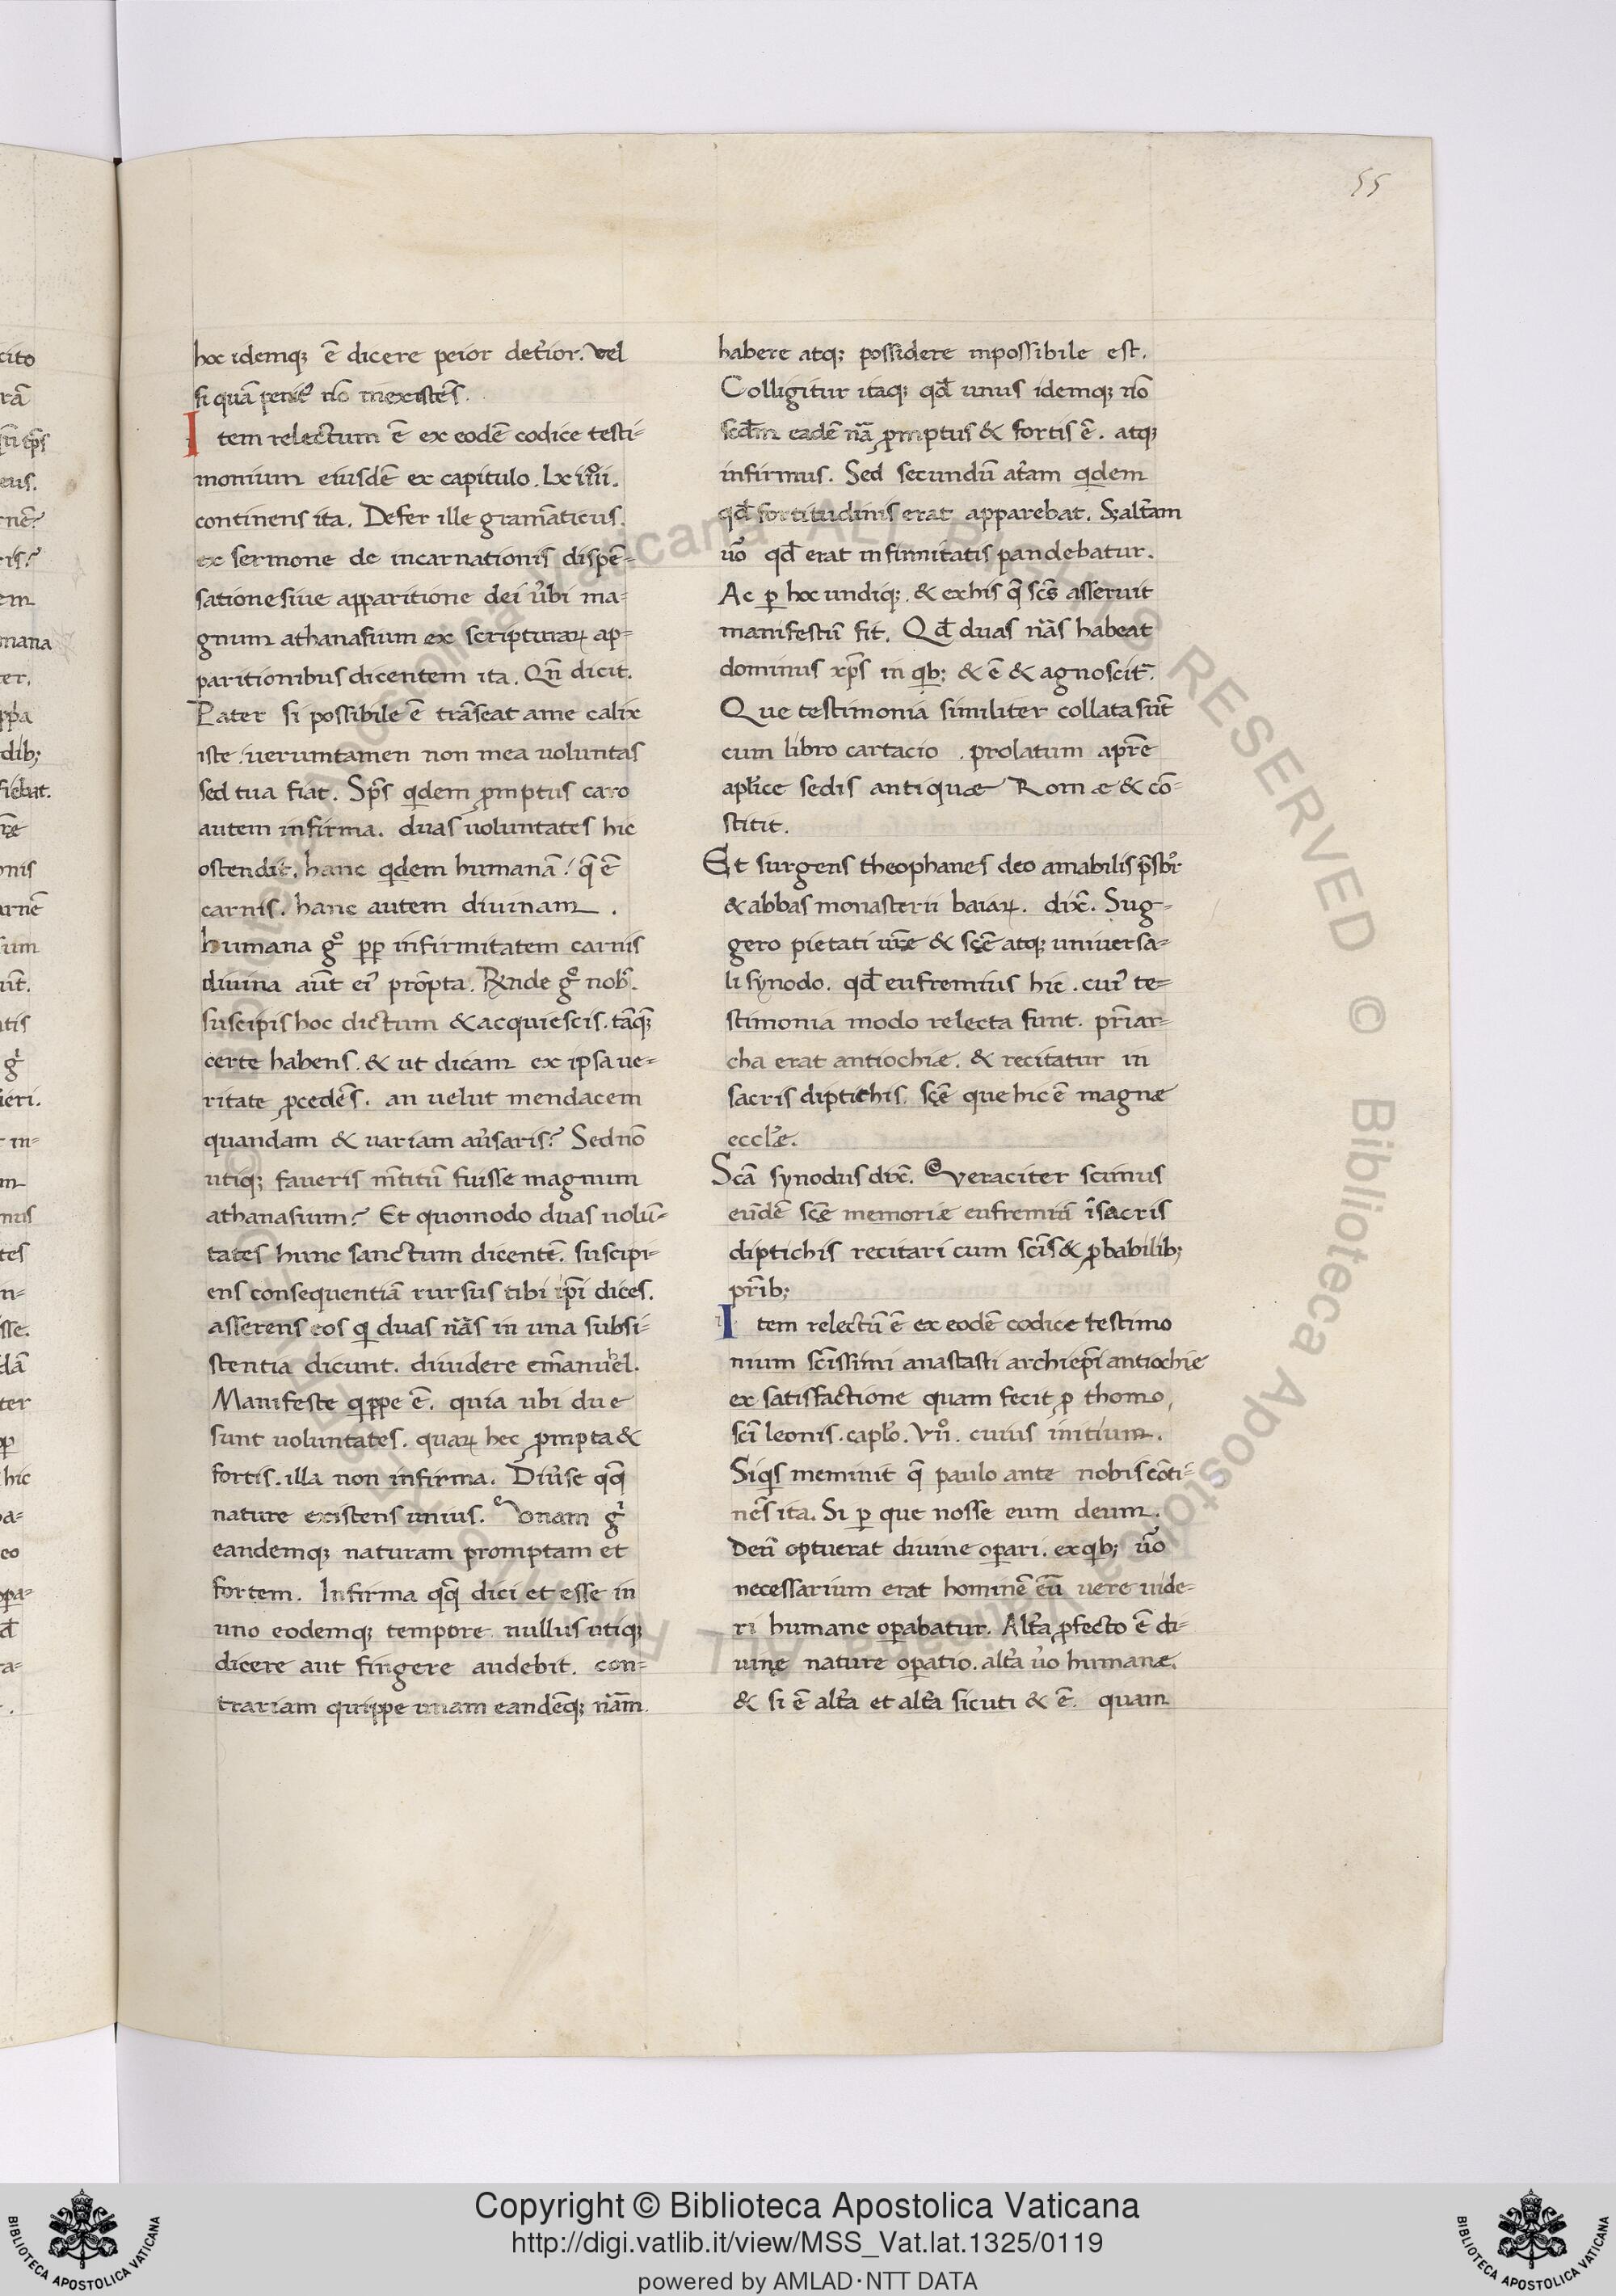 55
hoc idemq; ē dicere peior det̾ior. vel
si quā penit᷒ nō inexistēs.
Item relectum ē ex eodē codice testi-
monium eiusdē ex capitulo. lxiiii.
continens ita. Defer ille gramāticus.
ex sermone de incarnationis dispē-
satione siue apparitione dei v̾bi ma-
gnum athanasium ex scripturaꝝ ap-
paritionibus dicentem ita. Qn̄ dicit.
Pater si possibile ē trāseat a me calix
iste. uerumtamen non mea uoluntas
sed tua fiat. Sp̄s qdem ꝓmptus caro
autem infirma. duas uoluntates hic
ostendit. hanc qdem humanā! q̄ ē
carnis. hanc autem diuinam.
humana gͦ ꝓp infirmitatem carnis
diuina aūt ei᷒ prōpta. gͦ nob᷒.
suscipis hoc dictum & acquiescis. tāq̄
certe habens. & ut dicam ex ipsa ue-
ritate ꝓcedēs. an uelut mendacem
quandam & uariam au̾saris? Sed nō
utiq; faueris m̄titū fuisse magnum
athanasium? Et quomodo duas uolū-
tates hunc sanctum dicentē. suscipi-
ens consequentiā rursus tibi ip̄i dices.
asserens eos q duas nāˢ in una subsi-
stentia dicunt. diuidere emānuel.
Manifeste qppe ē. quia ubi due
sunt uoluntates. quaꝝ hec ꝓmpta &
fortis. illa non infirma. Diu̾se qq̄
nature existens unius. Vnam gͥ
eandemq; naturam promptam et
fortem. Infirma qq̄ dici et esse in
uno eodemq; tempore nullus utiq;
dicere aut fingere audebit. con-
trariam quippe unam eandēq; nām.
habere atq; possidere inpossibile est.
Colligitur itaq; qđ unus idemq; nō
scd̄m eadē nā ꝓmptus & fortis ē. atq;
infirmus. Sed secundū at̾am qdem
qđ fortitudinis erat apparebat. S; alt̾am
ūo qđ erat infirmitatis pandebatur.
Ac ꝑ hoc undiq;. & ex his q̄ sc̄s asseruit
manifestū fit. Qđ duas nāˢ habeat
dominus xp̄s in qb; & ē & agnoscit᷑.
Que testimonia similiter collata sūt
cum libro cartacio. prolatum a pr̄e
apl̄ice sedis antiquæ Romæ & cō-
stitit.
Et surgens theophanes deo amabilis p̄sbr̄
& abbas monasterii baiaꝝ. dix̄. Sug-
gero pietati ur̄ę & sc̄ę atq; uniuersa-
li synodo. qđ eufremius hic. cui᷒ te-
stimonia modo relecta sunt. pr̄iar-
cha erat antiochiæ. & recitatur in
sacris diptichis. sc̄ę que hic ē magnæ
eccl̄ę.
Sc̄ā synodus dix̄. Veraciter scimus
eūdē sc̄ę memoriæ eufremiū ī sacris
diptichis recitari cum sc̄is & ꝓbabilib;
pr̄ib;
Item relectū ē ex eodē codice testimo
nium sc̄issimi anastasii archiep̄i antiochie
ex satisfactione quam fecit ꝑ thomo
sc̄i leonis. capl̄o. vii. cuius initium.
Siqs meminit q̄ paulo ante nobis cōti-
nēs ita. Si ꝑ que nosse eum deum.
Deū optuerat diuine oꝑari. ex qb; ūo
necessarium erat hominē eū uere uide-
ri humane oꝑabatur. Alt̾a ꝓfecto ē di-
uinę nature oꝑatio. alt̾a ūo humanæ.
& si ē alt̾a et alt̾a sicuti & ē. quam
Copyright © Biblioteca Apostolica Vaticana
http://digi.vatlib.it/view/MSS_Vat.lat.1325/0119
powered by AMLAD·NTT DATA